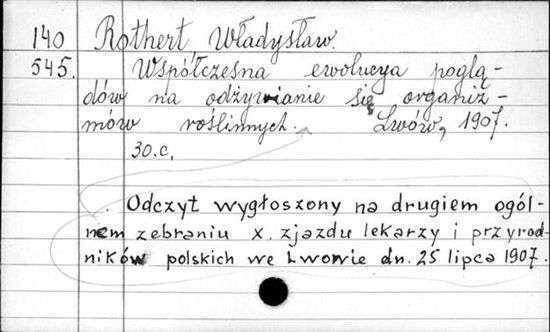 140 Rothert Władysław.
545. Współczesna ewolucya poglą-
dów na odżywianie się organiz-
mów roślinnych. Lwów, 1907.
30.c.
Odczyt wygłoszony na drugiem ogól-
nem zebraniu x. zjazdu lekarzy i przyrod-
ników polskich we Lwowie dn. 25 lipca 1907.